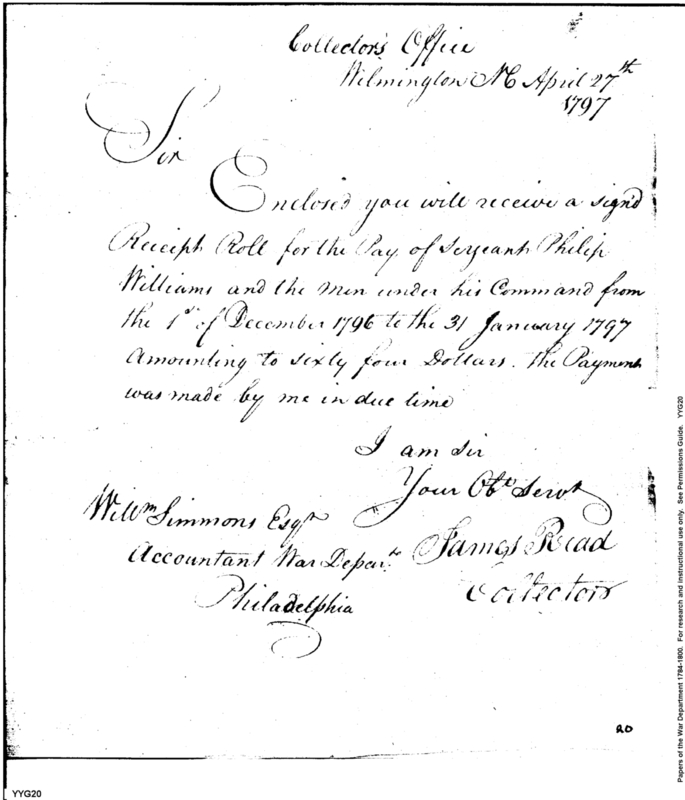 Collector's Office
Wilmington NC April 27th
1797
Sir
Enclosed you will receive a sign'd
Receipt Roll for the Pay of Serjeant Philip
Williams and the Men under his Command from
the 1st of December 1796 to the 31 January 1797
Amounting to sixty four Dollars. the Payment
was made by me in due time
I am Sir
Your Obt Servt
James Read
Collector
Willm Simmons Esqr
Accountant War Depart
Philadelphia
20
YYG20
Papers of the War Department 1784-1800. For research and instructional use only. See Permissions Guide. YYG20